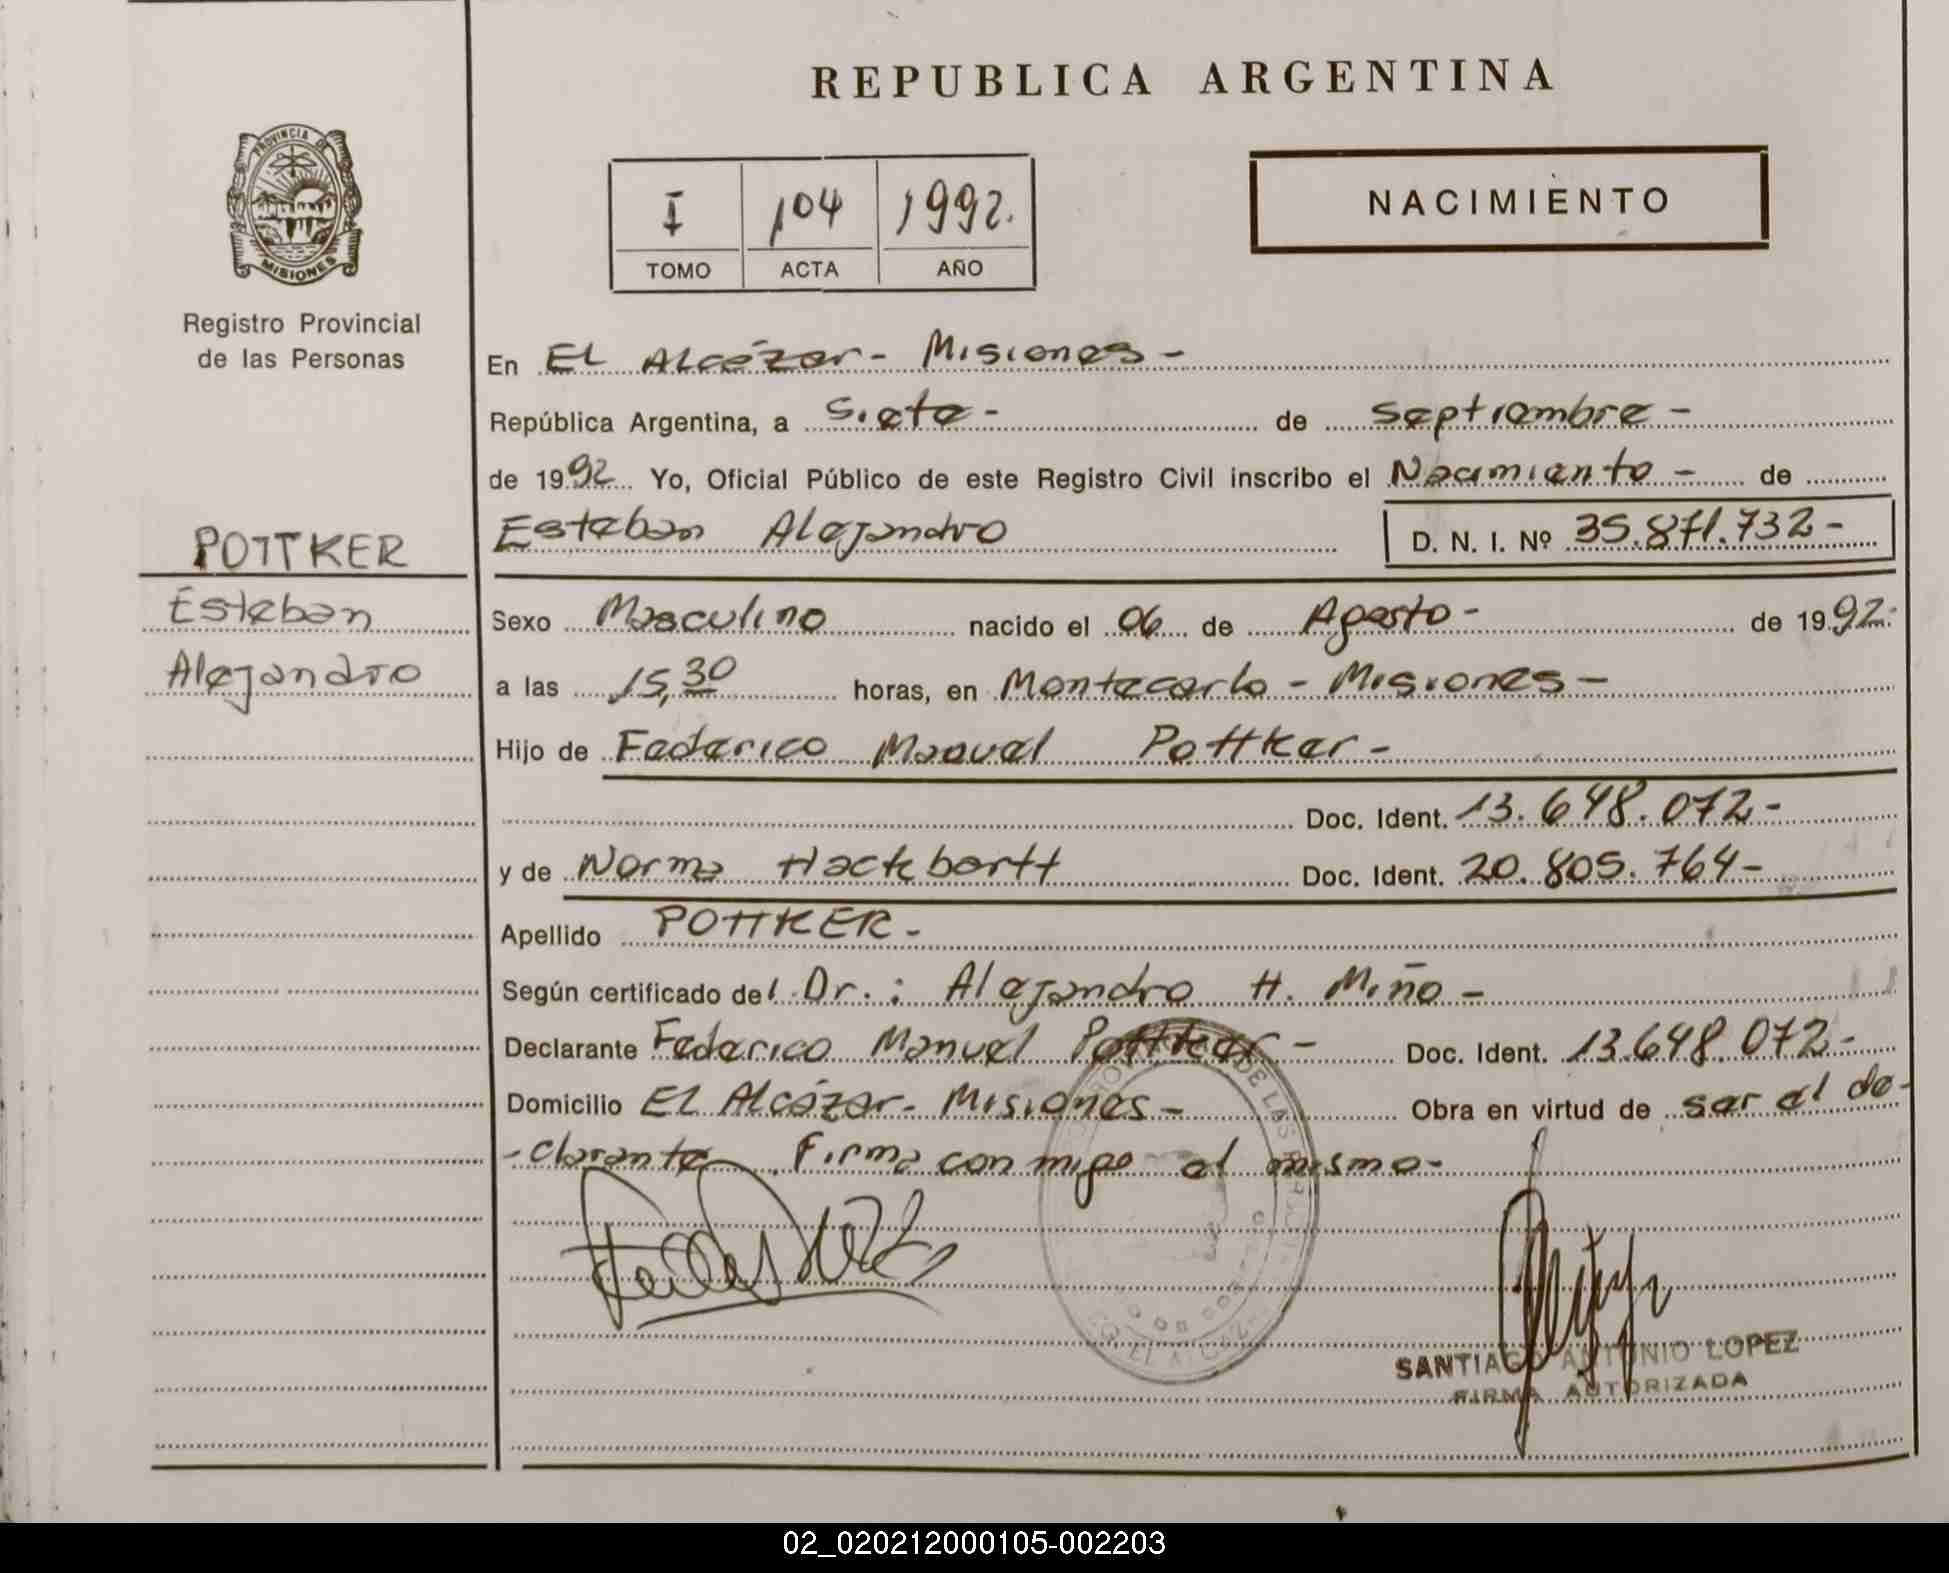 REPUBLICA ARGENTINA
PROVINCIA DE
MISIONES
Registro Provincial
de las Personas
I 104 1992.
TOMO ACTA AÑO
NACIMIENTO
En El Alcázar - Misiones -
República Argentina, a Siete - de Septiembre -
de 1992 Yo, Oficial Público de este Registro Civil inscribo el Nacimiento - de
Esteban Alejandro D. N. I. Nº 35.871.732 -
POTTKER
Esteban
Alejandro
Sexo Masculino nacido el 06 de Agosto - de 1992.
a las 15,30 horas, en Montecarlo - Misiones -
Hijo de Federico Manuel Pottker -
Doc. Ident. 13.648.072 -
y de Norma Hackbartt Doc. Ident. 20.805.764 -
Apellido POTTKER -
Según certificado del Dr.: Alejandro H. Miño -
Declarante Federico Manuel Pottker - Doc. Ident. 13.648.072 -
Domicilio El Alcázar - Misiones - Obra en virtud de ser el de-
-clarante Firma con migo el mismo -
SANTIAGO ANTONIO LOPEZ
FIRMA AUTORIZADA
02_020212000105-002203